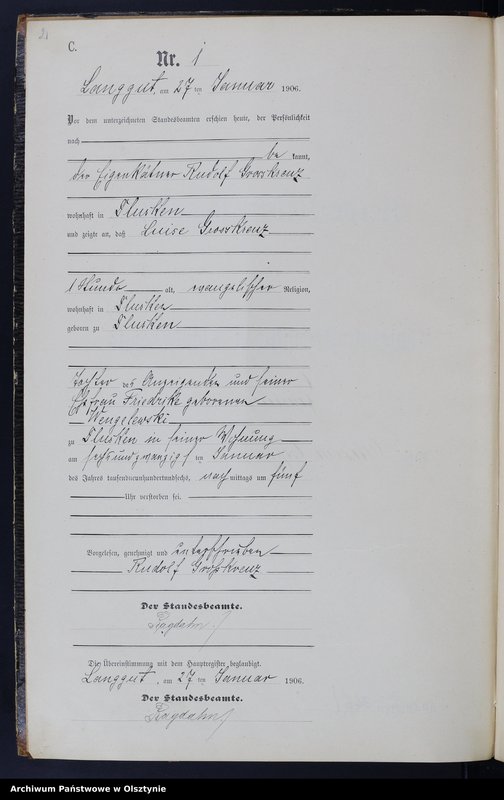 21
C.
Nr. 1
Langgut, am 27 ten Januar 1906.
Vor dem unterzeichneten Standesbeamten erschien heute, der Persönlichkeit
nach
be kannt,
der Eigenkätner Rudolf Grosskreuz
wohnhaft in Thurken
und zeigte an, daß Luise Grosskreuz
1 Stunde alt, evangelischer Religion,
wohnhaft in
geboren zu
Tochter des Anzeigenden und seiner
Ehefrau Friedrike geborenen
Wengelewski
zu in seiner Wohnung
am sechsundzwanzigs ten Januar
des Jahres tausendneunhundertundsechs, nach mittags um fünf
Uhr verstorben sei.
Vorgelesen, genehmigt und unterschrieben
Rudolf Großkreuz
Der Standesbeamte.
Die Übereinstimmung mit dem Hauptregister beglaubigt.
Langgut, am 27 ten Januar 1906.
Der Standesbeamte.
Archiwum Państwowe w Olsztynie